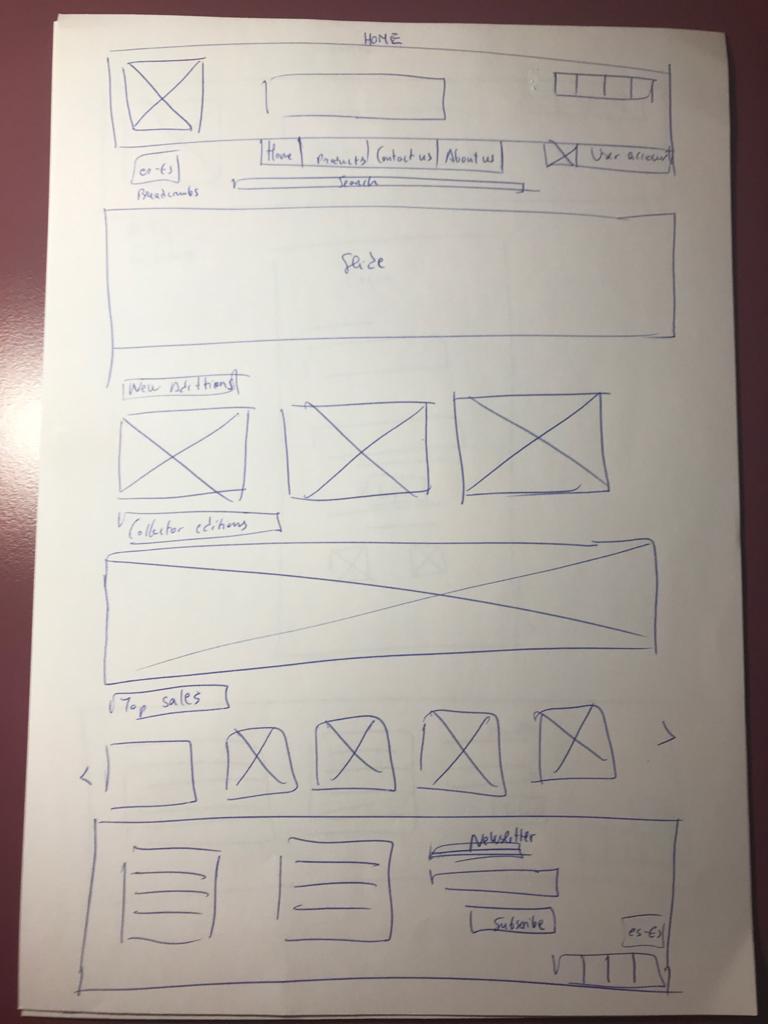 HOME
es-Es
Home
Products
Contact us
About us
User account
Breadcrumbs
Search
Slide
New Edittions
Collector editions
Top sales
<
>
Newsletter
Subscribe
es-Es